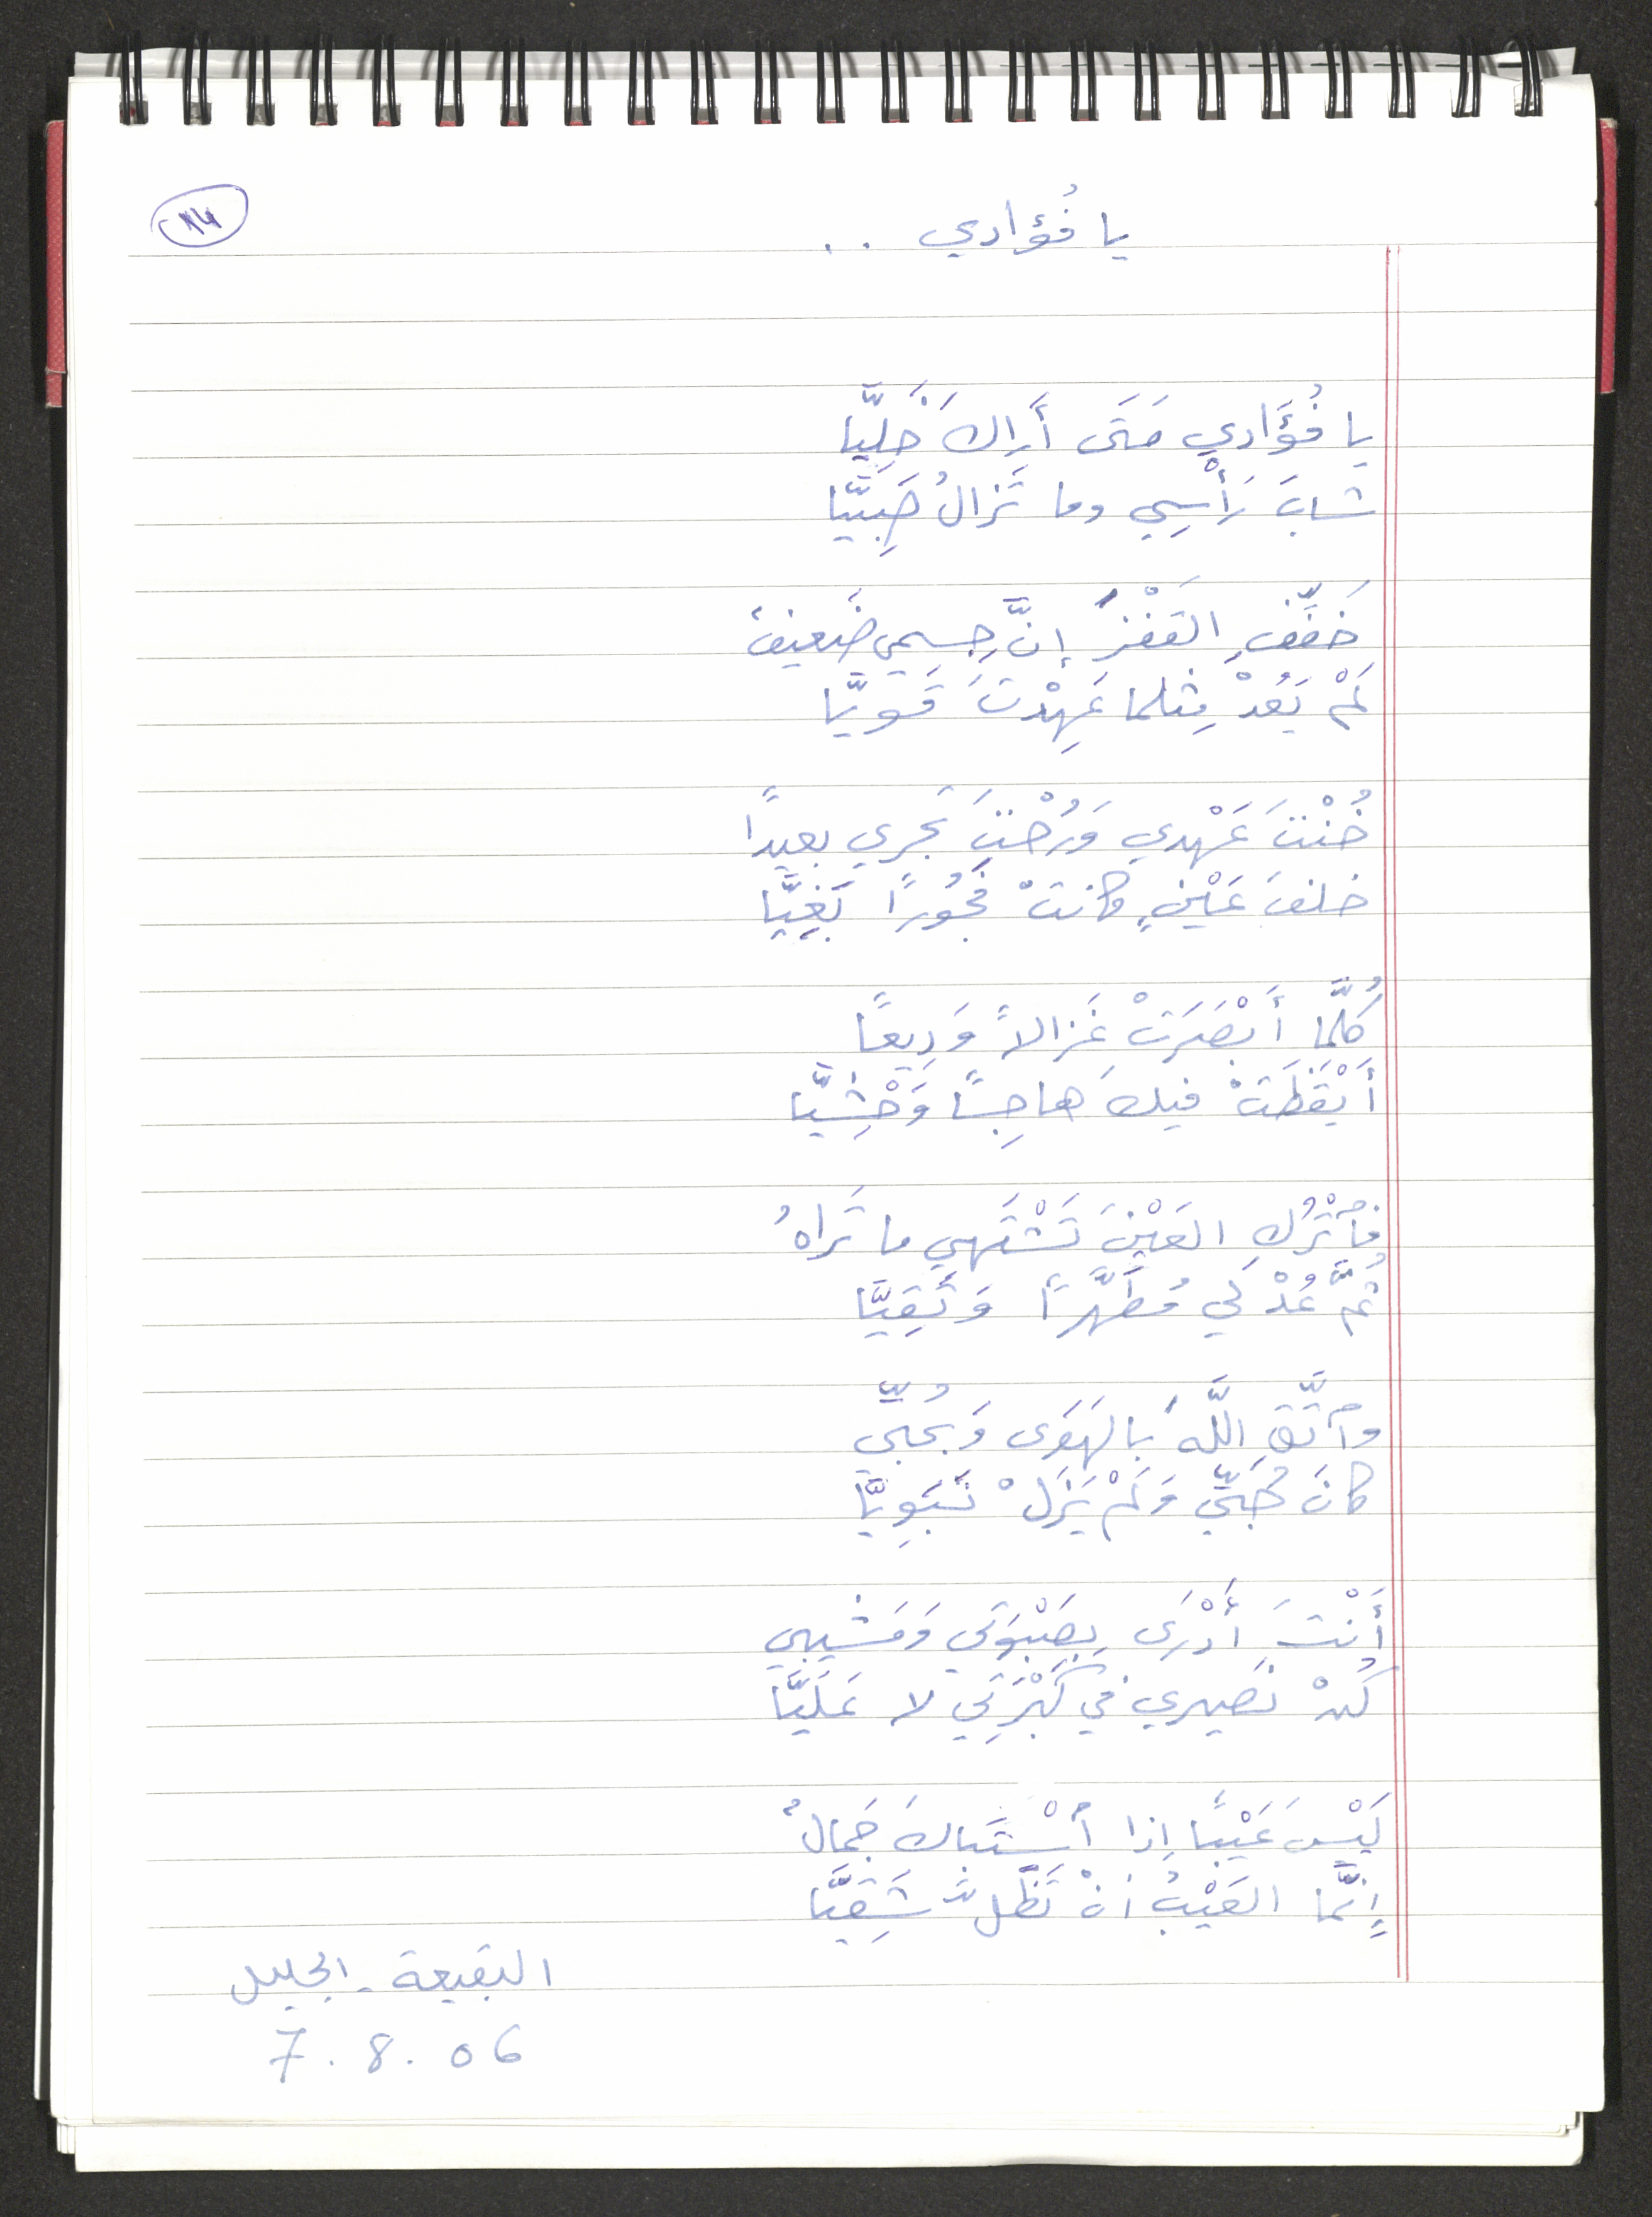 يا فُؤادي ..
يا فُؤَادي مَتَى أَرَاكَ خَلِيَّا
شابَ رَأْسِي وما تَزالُ صَبِيَّا
خَفِّفِ القَفْزَ إنَّ جِسمِي ضَعيفٌ
لَمْ يَعُدْ مِثلما عَهِدْتَ قَويَّا
خُنْتَ عَهْدي وَرُحْتَ تَجري بعيدًا
خلفَ عَيْنٍ كانتْ فَجُورًا بَغِيَّا
كُلَّما أَبْصَرَتْ غَزالاً وَدِيعًا
أَيْقَظَتْ فيكَ هاجِسًا وَحْشِيَّا
فٱتْرُكِ العَيْنَ تَشْتَهي ما تَراهُ
ثُمَّ عُدْ لي مُطَهَّرًا وَتَقِيَّا
وٱتَّقِ اللَّهَ بالهَوَى وَبحُبِّي
كانَ حُبِّي وَلَمْ يَزَلْ نَبَوِيَّا
أَنْتَ أَدْرَى بِصَبْوَتي وَمَشيبي
كُنْ نَصيري في كَبْرَتِي لا عَلَيَّا
لَيْسَ عَيْبًا إذا ٱسْتَباكَ جَمالٌ
إِنَّما العَيْبُ أنْ تَظَلَّ شَقِيَّا
البقيعة - الجليل
7.8.06